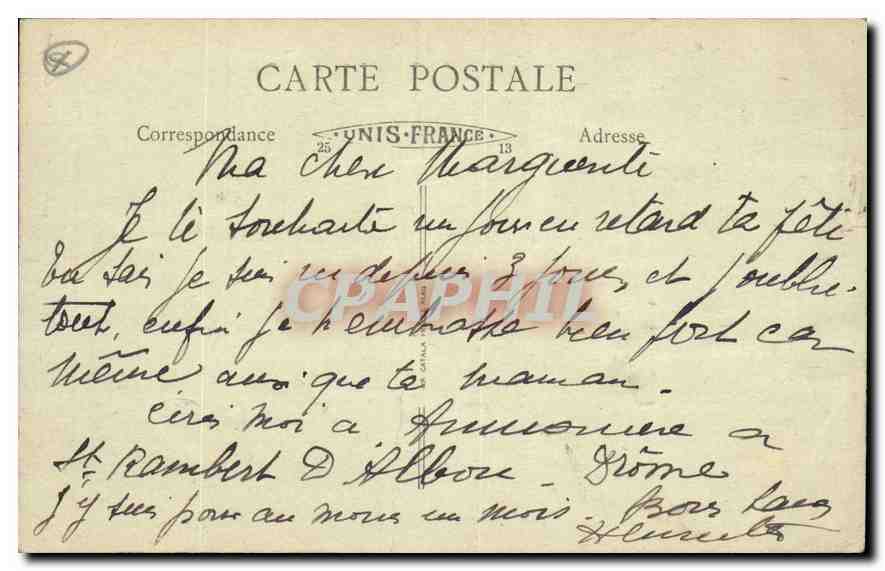 CARTE POSTALE
Correspondance UNIS-FRANCE Adresse
25 13
Ma chere Marguerite
Je te souhaite un jour en retard ta fête
tu sais je suis depuis 3 jours et j'oublie
tout, enfin je t'embrasse bien fort car
même ainsi que ta maman.
Cries moi a
St Rambert D'Albon. Drôme
J'y suis pour au moins un mois. Bons
CPAPHIL